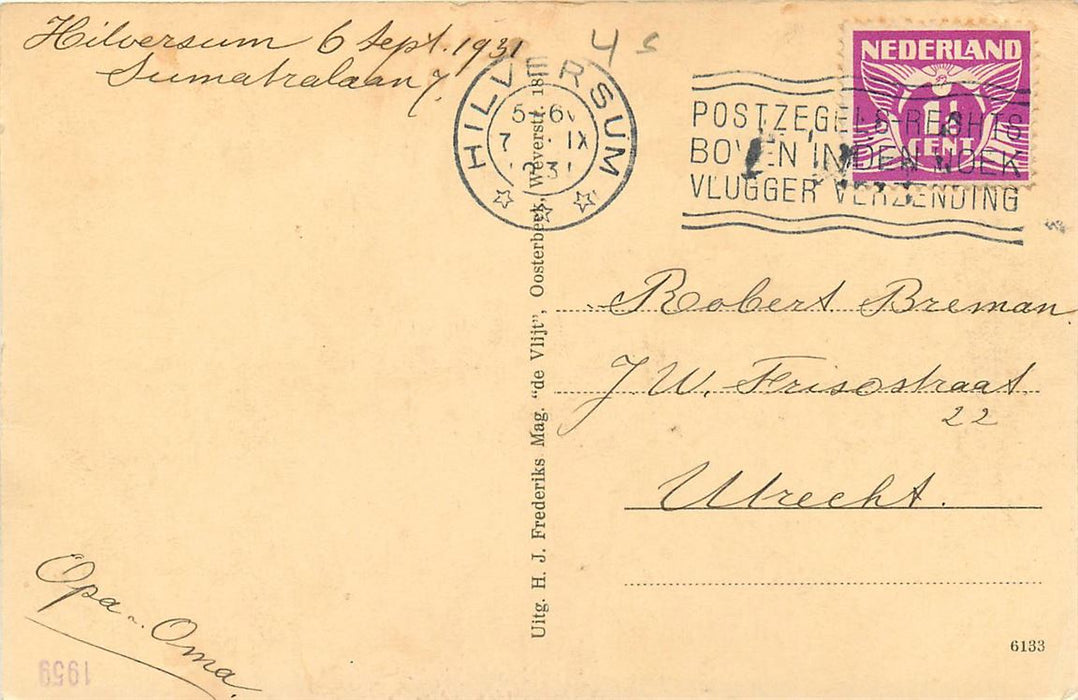 Hilversum 6 Sept. 1931
Sumatralaan 7.
4 s
HILVERSUM
7 IX
NEDERLAND
1½
CENT
POSTZEGELS RECHTS
BOVEN IN DEN HOEK
VLUGGER VERZENDING
Robert Breman
J. W. Frisostraat
22
Utrecht.
Uitg. H. J. Frederiks Mag. "de Vlijt", Oosterbeek, Weverstr. 18
Opa n. Oma.
1959
6133